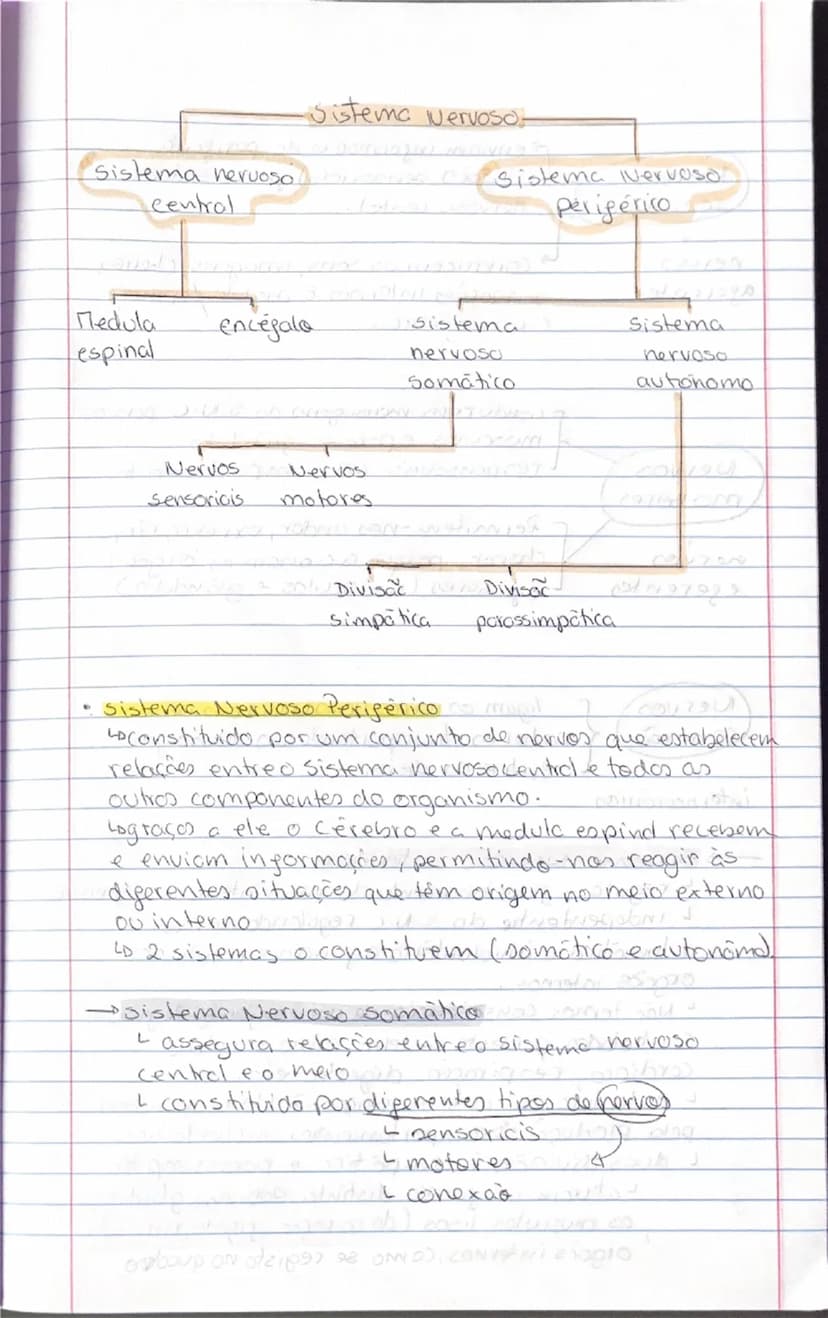 Sistema Nervoso
Sistema nervoso central
Sistema Nervoso periférico
Medula espinal
encéfalo
sistema nervoso somático
Sistema nervoso autónomo
Nervos sensoriais
Nervos motores
Divisão simpática
Divisão parassimpática
• Sistema Nervoso Periférico
↳ constituído por um conjunto de nervos que estabelecem
relações entre o sistema nervoso central e todos os
outros componentes do organismo.
↳ graças a ele o Cérebro e a medula espinal recebem
e enviam informações, permitindo-nos reagir às
diferentes situações que têm origem no meio externo
ou interno
↳ 2 sistemas o constituem (somático e autonómo)
→ Sistema Nervoso somático
↳ assegura relações entre o sistema nervoso
central e o meio
↳ constituído por diferentes tipos de nervos
↳ sensoriais
↳ motores
↳ conexão